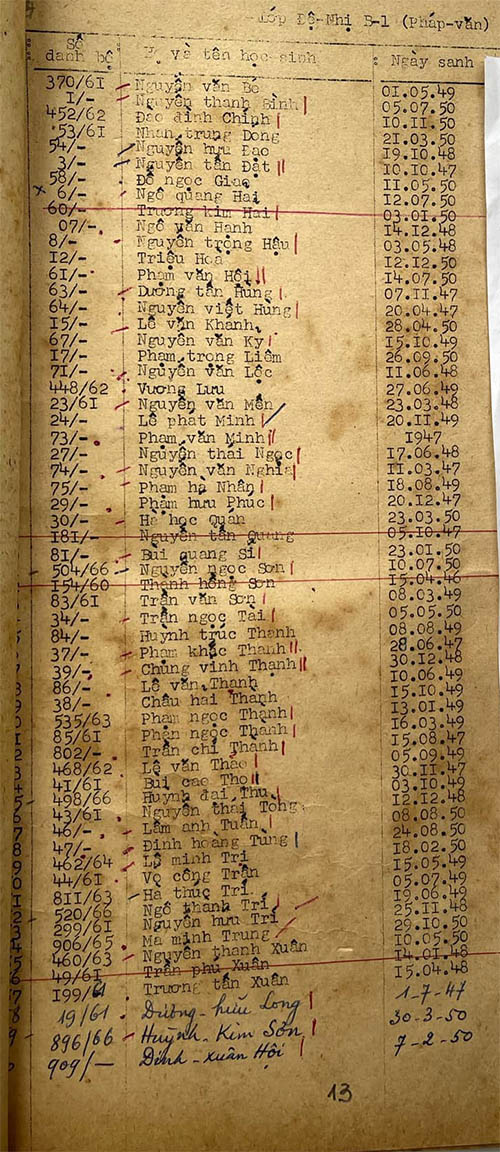 Lớp Đệ-Nhị B-1 (Pháp-văn)
Số danh bộ Họ và tên học-sinh Ngày sanh
370/6I Nguyễn văn Bé 0I.05.49
I/- Nguyễn thanh Bình 05.07.50
452/62 Đào đình Chính I0.II.50
53/6I Nhan trung Dong 2I.03.50
54/- Nguyễn hữu Đạo I9.I0.48
3/- Nguyễn tấn Đạt I0.I0.47
58/- Đỗ ngọc Giao II.05.50
x 6/- Ngô quang Hai I2.07.50
60/- Trương kim Hai 03.0I.50
07/- Ngô văn Hanh I4.I2.48
8/- Nguyễn trọng Hậu 03.05.48
I2/- Triệu Hoà I2.I2.50
6I/- Phạm văn Hội I4.07.50
63/- Dương tấn Hùng 07.II.47
64/- Nguyễn việt Hùng 20.04.47
I5/- Lê văn Khanh 28.04.50
67/- Nguyễn văn Ky I5.I0.49
I7/- Phạm trọng Liêm 26.09.50
7I/- Nguyễn văn Lộc II.06.48
448/62 Vương Lưu 27.06.49
23/6I Nguyễn văn Mến 23.03.48
24/- Lê phát Minh 20.II.49
73/- Phạm văn Minh I947
27/- Nguyễn thái Ngọc I7.06.48
74/- Nguyễn văn Nghĩa II.03.47
75/- Phạm hà Nhân I8.08.49
29/- Phạm hữu Phúc 20.I2.47
30/- Hà học Quán 23.03.50
I8I/- Nguyễn tấn Quang 05.I0.47
8I/- Bùi quang Sĩ 23.0I.50
504/66 Nguyễn ngọc Sơn I0.07.50
I54/60 Thạnh hồng Sơn I5.04.46
83/6I Trần văn Sơn 08.03.49
34/- Trần ngọc Tài 05.05.50
84/- Huỳnh trúc Thanh 08.08.49
37/- Phạm khắc Thanh 28.06.47
39/- Chung vinh Thanh 30.I2.48
86/- Lê văn Thạnh I0.06.49
38/- Châu hai Thành I5.I0.49
535/63 Phạm ngọc Thạnh I3.0I.49
85/6I Phan ngọc Thạnh I6.03.49
802/- Trần chí Thành I5.08.47
468/62 Lê văn Thảo 05.09.49
4I/6I Bùi cao Thọ 30.II.47
498/66 Huỳnh đại Thu 03.I0.49
43/6I Nguyễn thái Tòng I2.I2.48
46/- Lâm anh Tuấn 08.08.50
47/- Đinh hoàng Tùng 24.08.50
462/64 Lê minh Trí I8.02.50
44/6I Võ công Trần I5.05.49
8II/63 Hà thúc Trí 05.07.49
520/66 Ngô thanh Trí I9.06.49
299/6I Nguyễn hữu Trí 25.II.48
906/65 Mã minh Trung 29.I0.50
460/63 Nguyễn thanh Xuân I0.05.50
49/6I Trần phú Xuân I4.0I.48
I99/61 Trương tấn Xuân I5.04.48
19/61 Dương-hữu Long 1-7-47
896/66 Huỳnh-Kim Sơn 30-3-50
909/- Đinh-xuân Hội 7-2-50
13